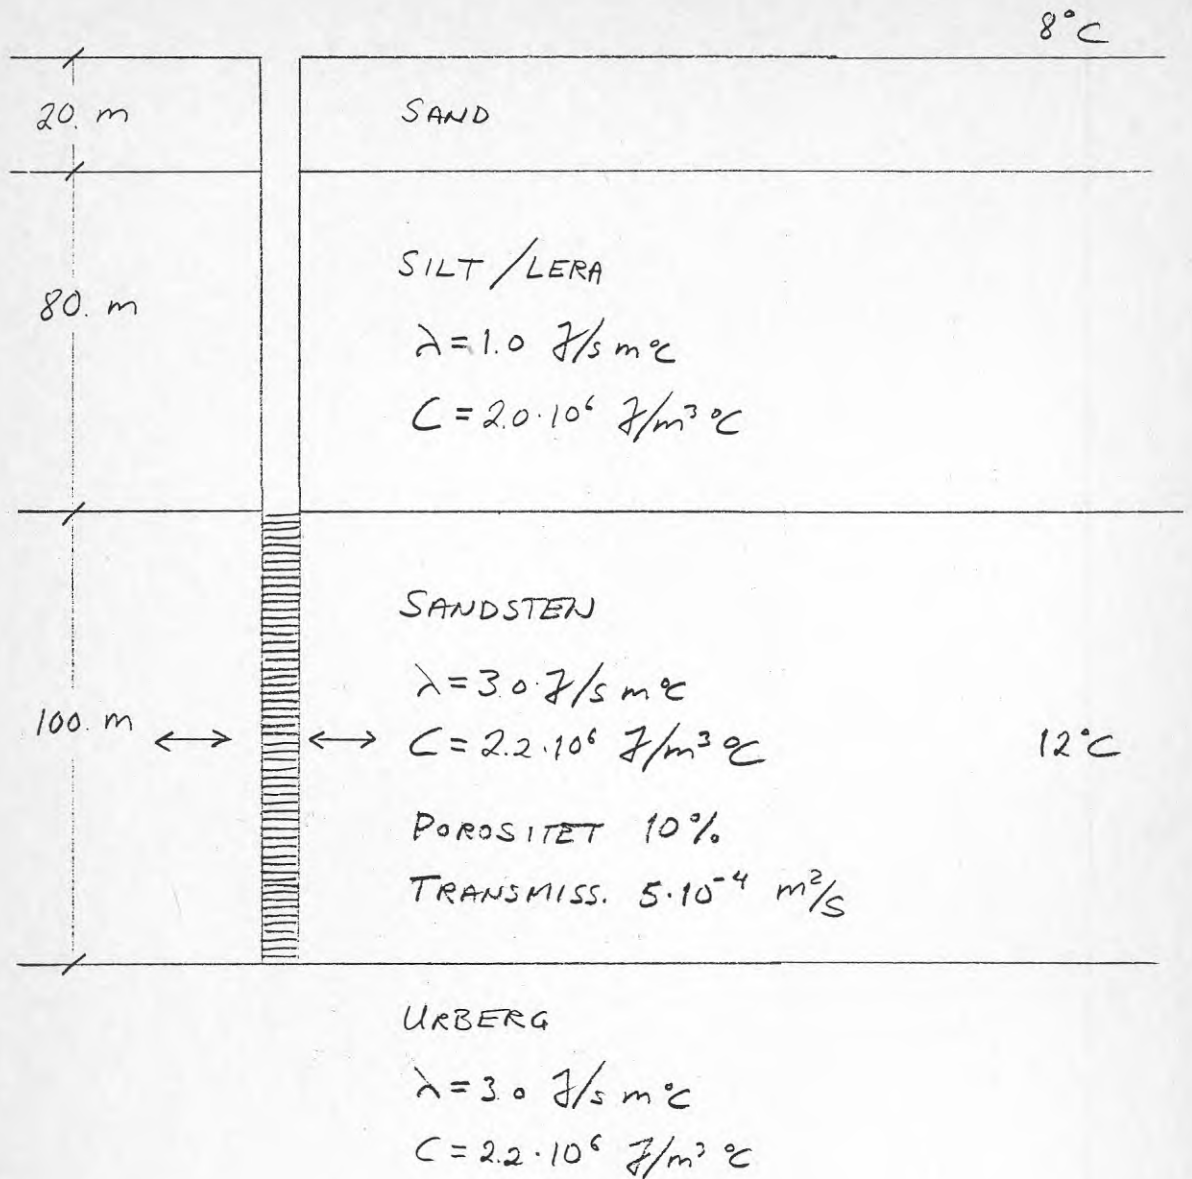 8°C
20. m
SAND
SILT/LERA
80. m
λ=1.0 J/s m°C
C=2.0·10⁶ J/m³ °C
SANDSTEN
λ=3.0 J/s m°C
100. m
C=2.2·10⁶ J/m³ °C
12°C
POROSITET 10%
TRANSMISS. 5·10⁻⁴ m²/s
URBERG
λ=3.0 J/s m°C
C=2.2·10⁶ J/m³ °C